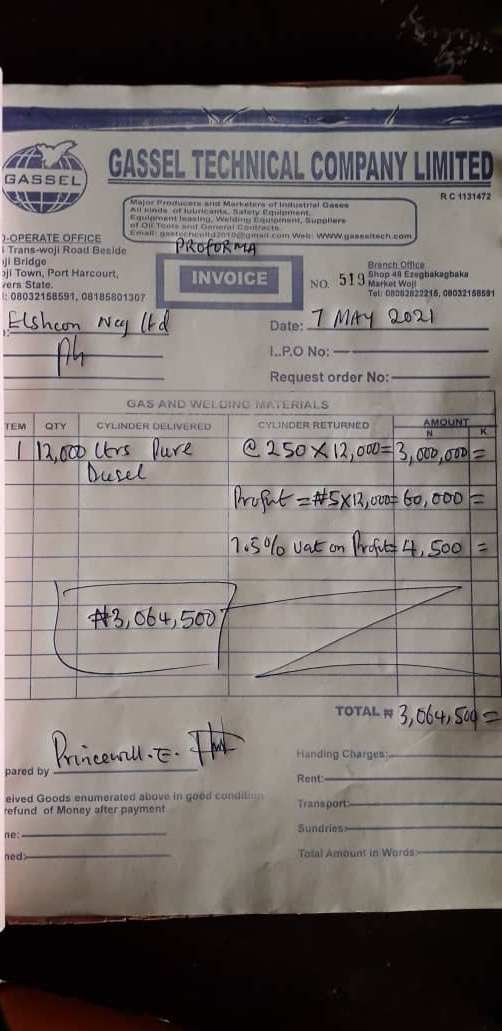 GASSEL
GASSEL TECHNICAL COMPANY LIMITED
R C 1131472
Major Producers and Marketers of Industrial Gases
All kinds of lubricants, Safety Equipment,
Equipment leasing, Welding Equipment, Suppliers
of Oil Tools and General Contracts.
Email: gastechcoltd2010@gmail.com Web: WWW.gasseltech.com
-OPERATE OFFICE
Trans-woji Road Beside
ji Bridge
oji Town, Port Harcourt,
vers State.
l: 08032158591, 08185801307
PROFORMA
INVOICE
NO. 519
Branch Office
Shop 48 Ezegbakagbaka
Market Woji
Tel: 08082822216, 08032158591
Elshcon Nig Ltd
Ph
Date: 7 MAY 2021
L.P.O No:
Request order No:
GAS AND WELDING MATERIALS
TEM QTY CYLINDER DELIVERED CYLINDER RETURNED AMOUNT
N K
1 12,000 Ltrs Pure @ 250 X 12,000= 3,000,000 =
Diesel
Profit = ₦5X12,000= 60,000 =
7.5% vat on Profit= 4,500 =
₦3,064,500
TOTAL ₦ 3,064,500 =
Princewill. E.
pared by
eived Goods enumerated above in good condition
refund of Money after payment
me:
ned:
Handing Charges:
Rent:
Transport:
Sundries:
Total Amount in Words: